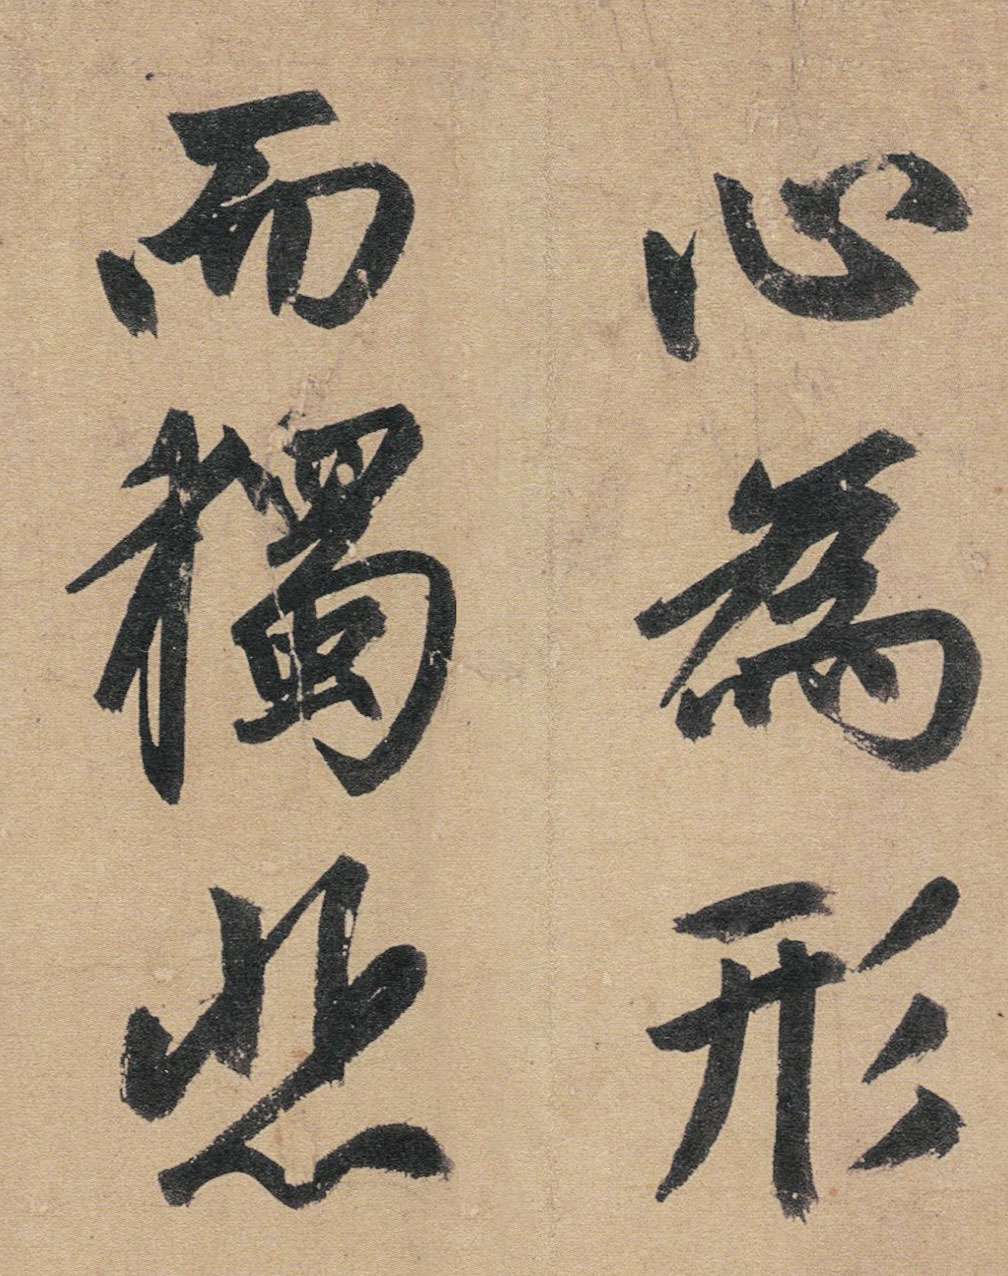 心為形
而獨悲